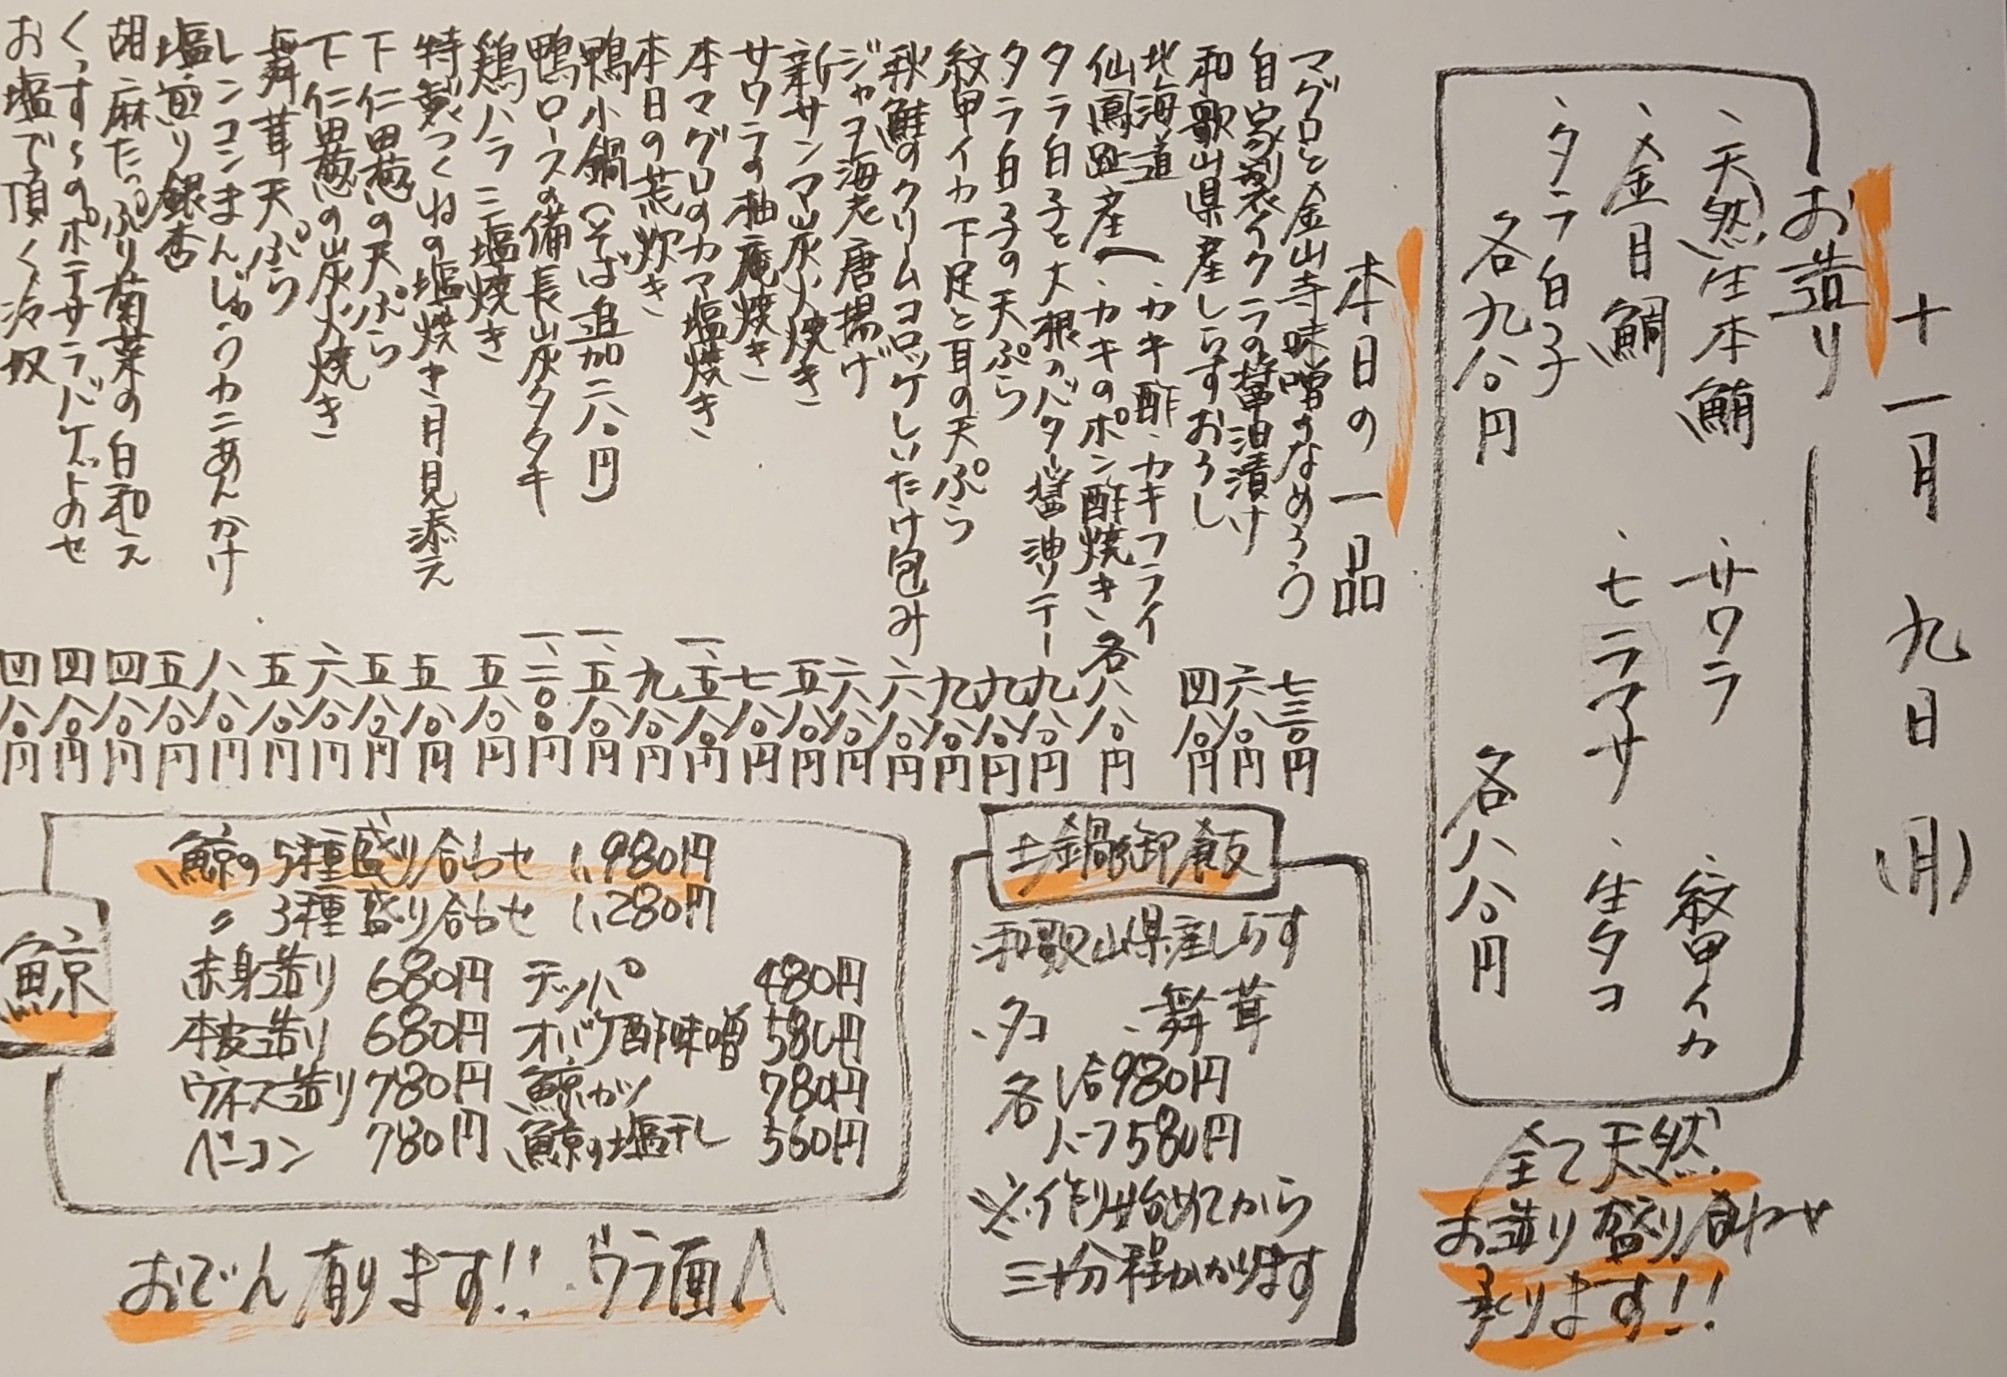 十一月九日(月)
お造り
、天然生本鮪 、サワラ 、紋甲イカ
、金目鯛 、ヒラマサ 、生タコ
、タラ白子
各九八〇円 各八八〇円
全て天然
お造り盛り合わせ
承ります!!
本日の一品
マグロと金山寺味噌のなめろう 七三〇円
自家製イクラの醤油漬け 六八〇円
和歌山県産しらすおろし 四八〇円
北海道
仙鳳趾産へ 、カキ酢、カキフライ
、カキのポン酢焼き 各八八〇円
タラ白子と大根のバター醤油ソテー 九八〇円
タラ白子の天ぷら 九八〇円
紋甲イカ下足と耳の天ぷら 九八〇円
秋鮭のクリームコロッケしいたけ包み 六八〇円
ジャコ海老唐揚げ 六八〇円
新サンマ炭火焼き 五八〇円
サワラの柚庵焼き 七八〇円
本マグロのカマ塩焼き 一、五八〇円
本日の荒炊き 九八〇円
鴨小鍋(そば追加二八〇円) 一、五八〇円
鴨ロースの備長炭タタキ 一、二〇〇円
鶏ハラミ塩焼き 五八〇円
特製つくねの塩焼き月見添え 五八〇円
下仁田葱の天ぷら 五八〇円
下仁田葱の炭火焼き 六八〇円
舞茸天ぷら 五八〇円
レンコンまんじゅうカニあんかけ 八八〇円
塩煎り銀杏 五八〇円
胡麻たっぷり菊菜の白和え 四八〇円
くんすぃのポテサラバゲットのせ 四八〇円
お塩で頂く冷奴 四八〇円
土鍋御飯
、和歌山県産しらす
、タコ 、舞茸
各 1合980円
ハーフ580円
※作り始めてから
三十分程かかります
鯨
鯨の5種盛り合わせ 1,980円
〃 3種盛り合わせ 1,280円
赤身造り 680円 テッパ 480円
本皮造り 680円 オバケ酢味噌 580円
ウネス造り 780円 鯨カツ 780円
ベーコン 780円 鯨の塩干し 560円
おでん有ります!!ウラ面へ